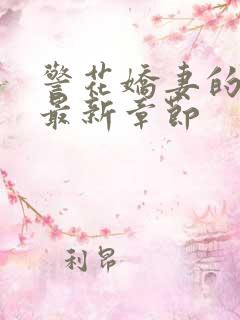 警花娇妻的
最新章节
利昂